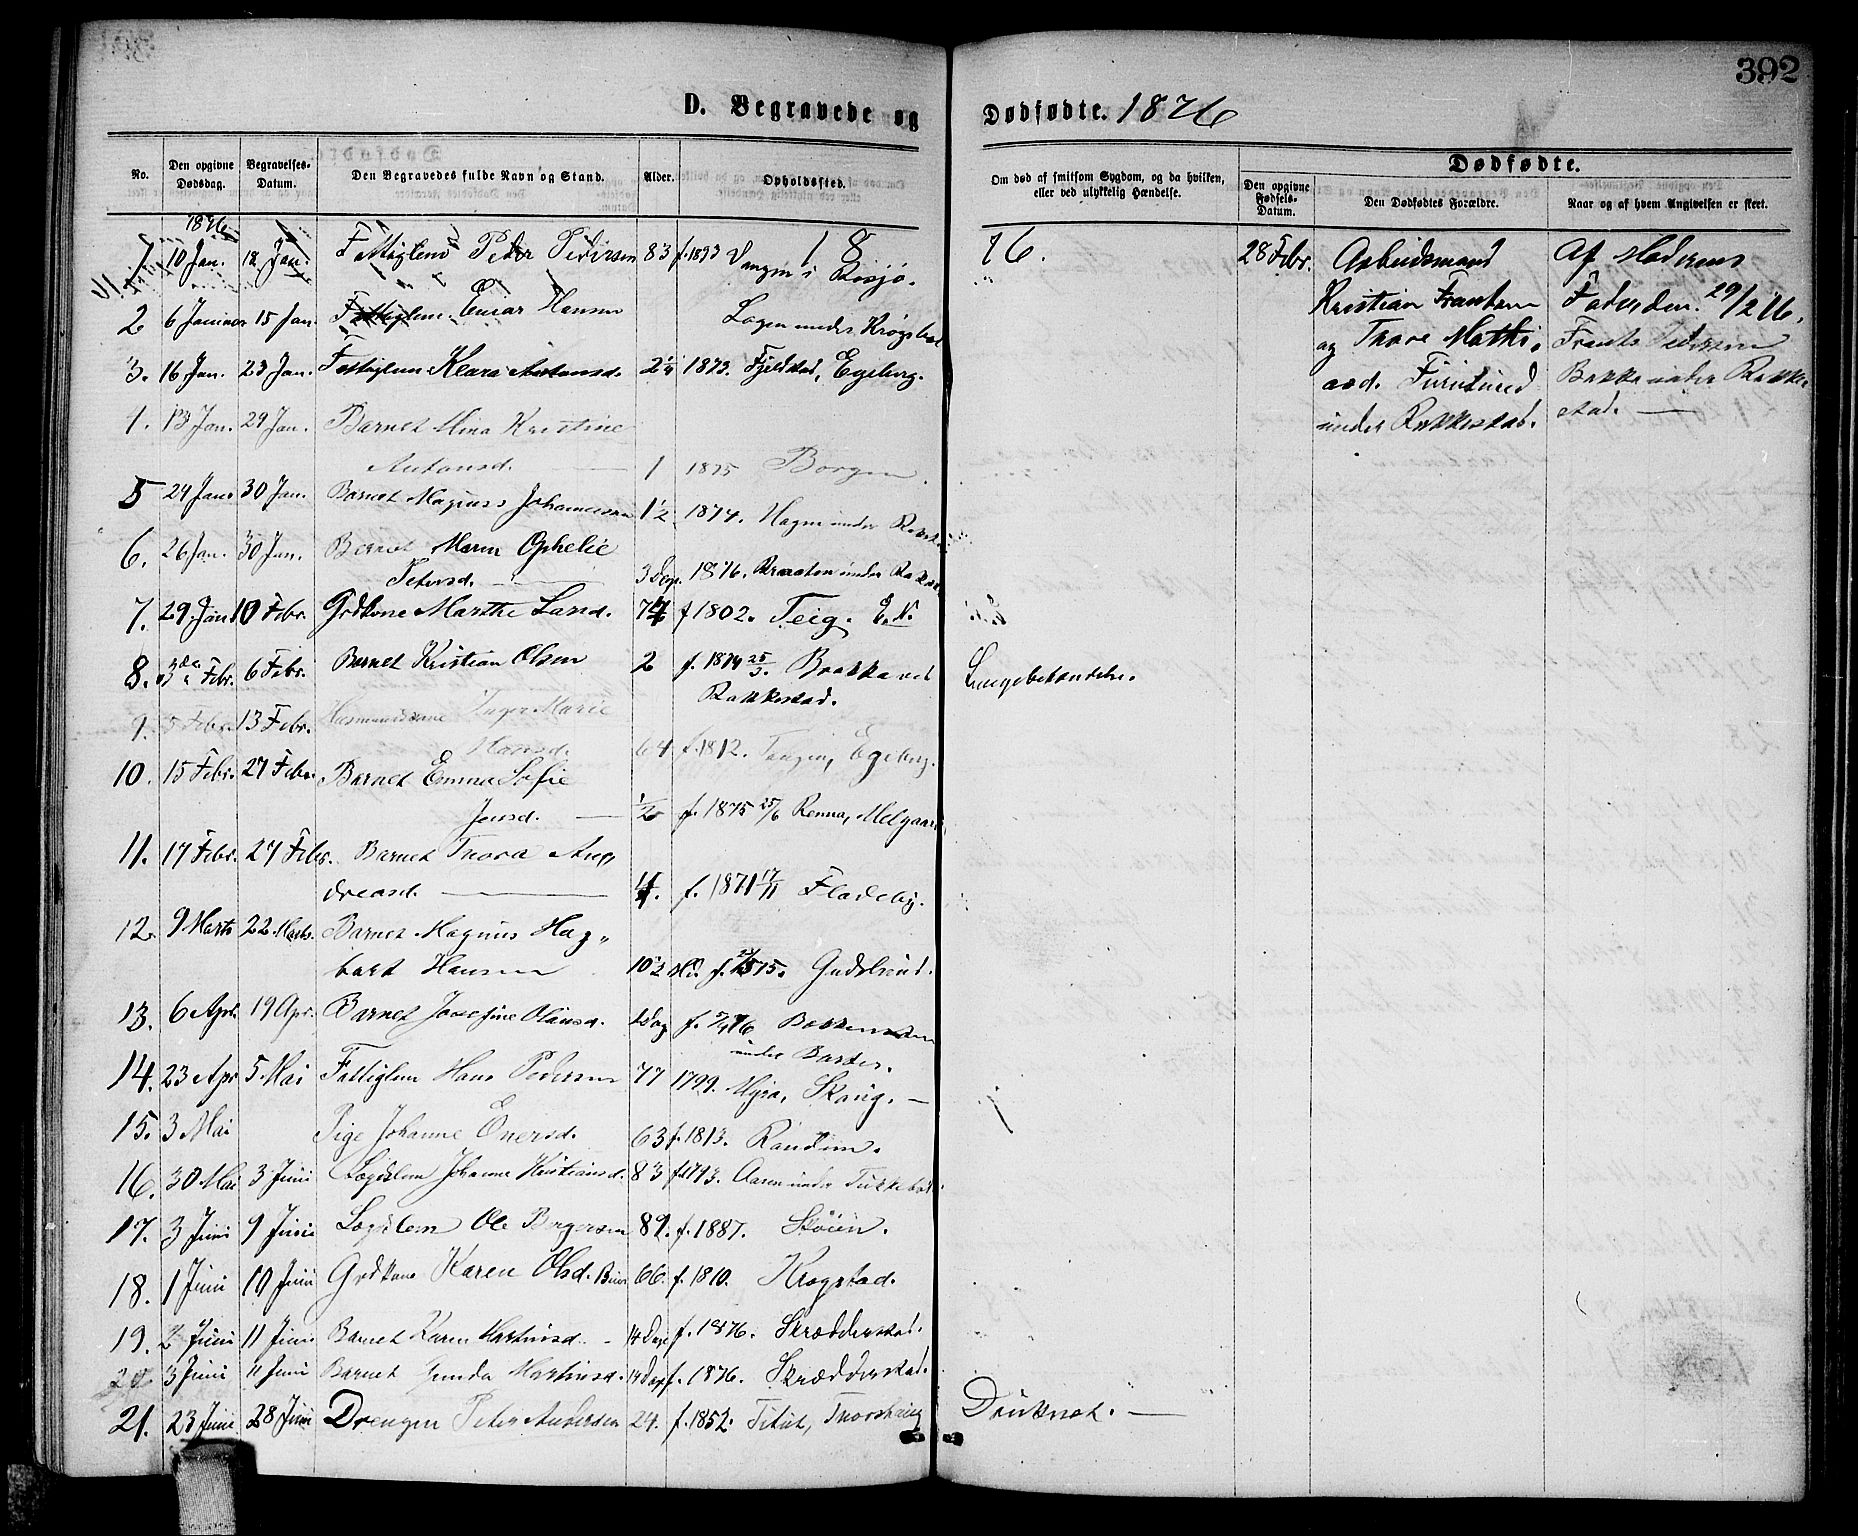 392
D. Begravede og Dødfødte. 1876
No.
Den opgivne Dødsdag.
Begravelses-Datum.
Den Begravedes fulde Navn og Stand.
Alder.
Opholdssted.
Om død af smitsom Sygdom, og da hvilken, eller ved ulykkelig Hændelse.
Dødfødte.
Den opgivne Fødsels-Datum.
Den Dødfødtes Forældre.
Naar og af hvem Angivelsen er skeet.
1876
18 76.
1 10 Jan. 12 Jan. Fattiglem Peder Pedersen 83 f. 1893
2 6 Januar 15 Jan. Fattiglem Einar Hansen
3. 16 Jan. 23 Jan. Fattiglem Klara Antonsd. 2 1/4 1873. Fjeldstad, Egeberg.
4. 13 Jan. 29 Jan. Barnet Mina Kristine
Antonsd. 1 1875 Borgen
5 24 Jan. 30 Jan. Barnet Magnus Johannessen 1 1/2 1874. Hagen under
6. 26 Jan. 30 Jan. Barnet Maren Ophelie
Petersd. 3 Dage. 1876. Braaten under
7. 29. Jan 10 Febr. Grdkone Marthe Larsd. 74 f 1802. Teig.
8. 3 Febr. 6 Febr. Barnet Kristian Olsen 2 f. 1874 25/3. Bakka ved
Rakkestad. Lungebetændelse.
9. 5 Febr. 13 Febr. Husmandskone Inger Marie
Hansd. 64 f. 1812. Tangen, Egeberg.
10. 15 Febr. 27 Febr. Barnet Emma Sofie
Jensd. 1/2 f. 1875 25/6 Renna, Melgaard
11. 17 Febr. 27 Febr. Barnet Thora An-
dreasd. 4. f. 1871 17/11 Fladeby.
12. 9 Marts 22 Marts. Barnet Magnus Hag-
bart Hansen 10 1/2 Md. Gudslund.
13. 6 Apr. 19 Apr. Barnet Josefine Olausd. 1 Dag Bakken
under
14. 23 Apr 5 Mai Fattiglem Hans Pedersen 77 1799. Myra, Skoug.
15. 3 Mai Pige Johanne Enersd. 63 f. 1813. Randem.
16. 30 Mai 3 Juni Lægdslem Johanne Kristiansd. 83 f. 1793. Aaren under
17. 3 Juni 9 Juni Lægdslem Ole Bergersen 89. f. 1887. Skøien.
18. 1 Juni 10 Juni Grdkone Karen Olsd. 66. f. 1810. Krogstad.
19. 2 Juni 11 Juni Barnet Karen Martinsd. 14 Dage f. 1876. Skrædderstad.
20 3 Juni 11 Juni Barnet Gunda Martinsd. 14 Dage f. 1876. Skrædderstad.
21. 23 Juni 28 Juni Drengen Peter Andersen 24. f. 1852. Druknet.
28 Febr.
Arbeidsmand
Kristian Frantsen
og Thore Mathi-
asd. Furulund
under Rakkestad.
Af Moderens
Fader den 29/2 76.
Frants Pedersen
Bakke under Rakke-
stad.